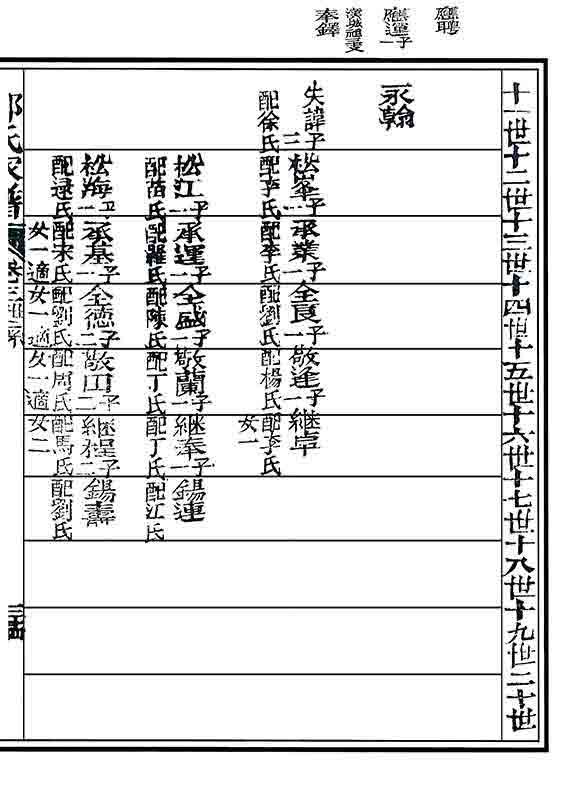 應聘
應運子一
奉鐸
十一世十二世十三世十四世十五世十六世十七世十八世十九世二十世
永翰
失諱子三松峯子一承業子一全良子一敬逢子一継卓
配徐氏配李氏配李氏配劉氏配楊氏配李氏
女一
松江子一承運子一全盛子一敬蘭子一継奉子一錫連
配苗氏配羅氏配陳氏配丁氏配丁氏配江氏
松海子二承基子一全德子二敬田子二継程子二錫壽
配逯氏配宋氏配劉氏配周氏配馬氏配劉氏
女一適女一適女一適女二
氏家譜 卷三世系